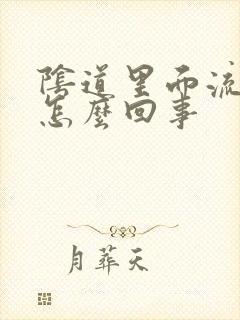 陰道里面流
怎麼回事
月葬天